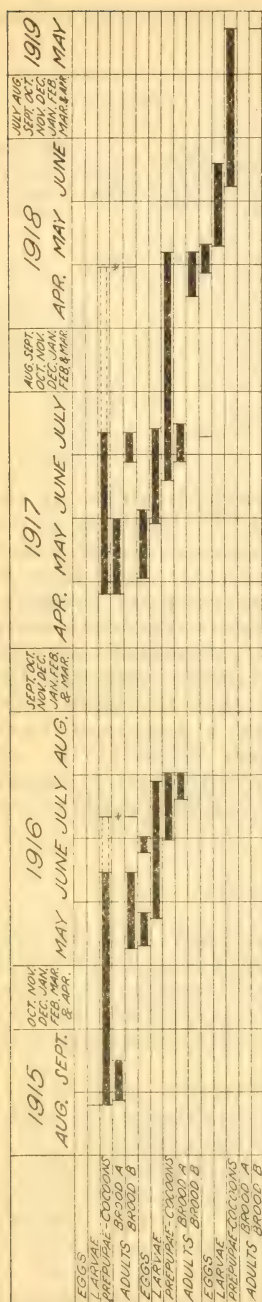 1915
AUG. SEPT.
OCT. NOV.
DEC. JAN.
FEB. MAR.
& APR.
1916
MAY JUNE JULY AUG.
SEPT. OCT.
NOV. DEC.
JAN. FEB.
& MAR.
1917
APR. MAY JUNE JULY
AUG. SEPT.
OCT. NOV.
DEC. JAN.
FEB. & MAR.
1918
APR. MAY JUNE
JULY AUG.
SEPT. OCT.
NOV. DEC.
JAN. FEB.
MAR. & APR.
1919
MAY
EGGS
LARVAE
PREPUPAE-COCOONS
ADULTS BROOD A
BROOD B
EGGS
LARVAE
PREPUPAE-COCOONS
ADULTS BROOD A
BROOD B
EGGS
LARVAE
PREPUPAE-COCOONS
ADULTS BROOD A
BROOD B